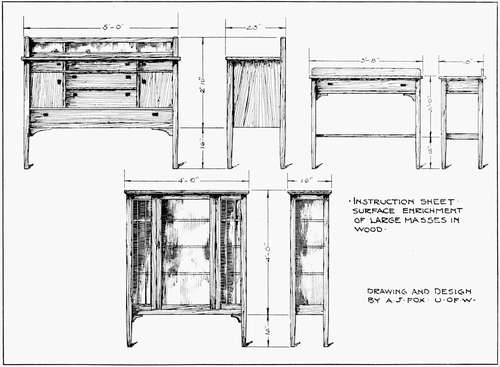 5'-0"
23"
3'-8"
4'-0"
16"
4'-0"
· INSTRUCTION SHEET ·
SURFACE ENRICHMENT
OF LARGE MASSES IN
WOOD ·
DRAWING AND DESIGN
BY A. J. FOX · U · OF · W ·